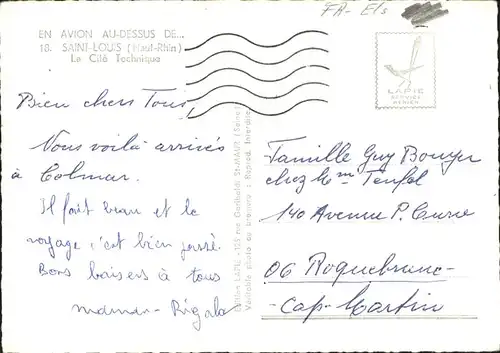 FA-Els
EN AVION AU-DESSUS DE...
18. SAINT-LOUIS (Haut-Rhin)
La Cité Technique
LAPIE
SERVICE
AERIEN
Bien chers Tous,
Vous voilà arrivés
à Colmar.
Il fait beau et le
voyage s'est bien passé.
Bons baisers à tous
maman-
Edition LAPIE, 125 rue Garibaldi St-MAUR (Seine)
Véritable photo au bromure : Reprod. Interdite
Famille Guy Bouyer
chez Mme Teufel
140 Avenue P. Curie
06 Roquebrune-
-Cap-Martin